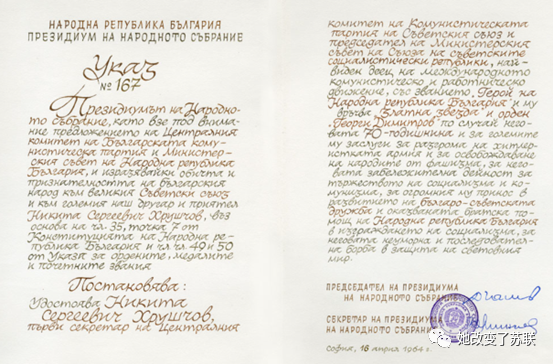 НАРОДНА РЕПУБЛИКА БЪЛГАРИЯ
ПРЕЗИДИУМ НА НАРОДНОТО СЪБРАНИЕ
Указ
№ 167
Президиумът на Народно-
то събрание, като взе под внима-
ние предложението на Централния
комитет на Българската кому-
нистическа партия и Министер-
ския съвет на Народна република
България, и изразявайки обичта и
признателността на българския
народ към великия Съветски съюз и
към големия наш другар и приятел
Никита Сергеевич Хрушчов, въз
основа на чл. 35, точка 7 от
Конституцията на Народна ре-
публика България и чл. чл. 49 и 50
от Указа за ордените, медалите
и почетните звания
Постановява:
Удостоява Никита
Сергеевич Хрушчов,
първи секретар на Централния
комитет на Комунистическата
партия на Съветския съюз и
председател на Министерския
съвет на Съюза на съветските
социалистически републики, най-
виден деец на международното
комунистическо и работническо
движение, със званието „Герой на
Народна република България" и му
връчва „Златна звезда" и орден
„Георги Димитров" по случай него-
вата 70-годишнина и за големите
му заслуги за разгрома на хитлер-
истката армия и за освобождаване
на народите от фашизма, за не-
говата забележителна дейност за
тържеството на социализма и ко-
мунизма, за огромния му принос в
развитието на българо-съветската
дружба и оказваната братска помощ
на Народна република България
в изграждането на социализма, за
неговата неуморна и последовател-
на борба в защита на световния
мир.
ПРЕДСЕДАТЕЛ НА ПРЕЗИДИУМА
НА НАРОДНОТО СЪБРАНИЕ
СЕКРЕТАР НА ПРЕЗИДИУМА
НА НАРОДНОТО СЪБРАНИЕ
София, 16 април 1964 г.
她改变了苏联